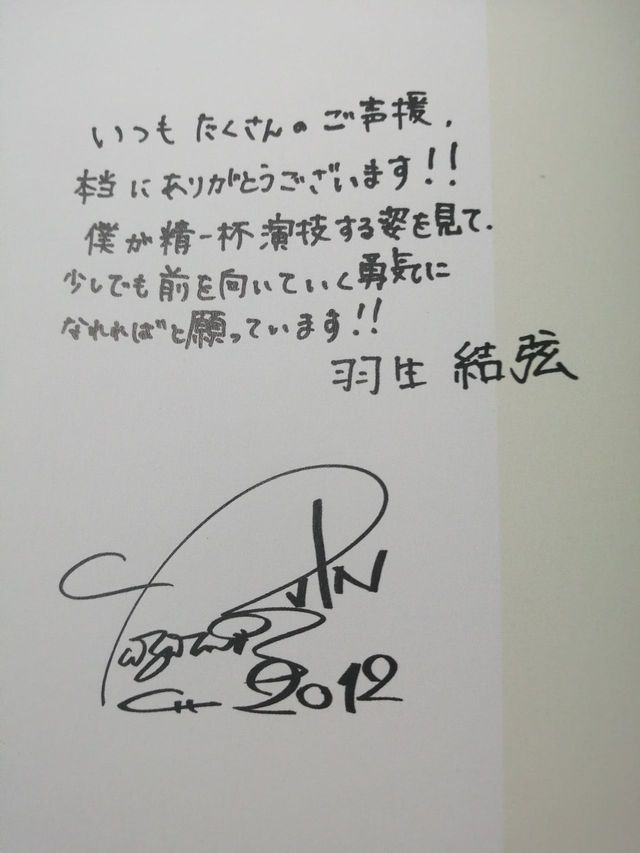 いつも たくさんの ご声援、
本当にありがとうございます!!
僕が精一杯演技する姿を見て、
少しでも前を向いていく勇気に
なれればと願っています!!
羽生 結弦
2012